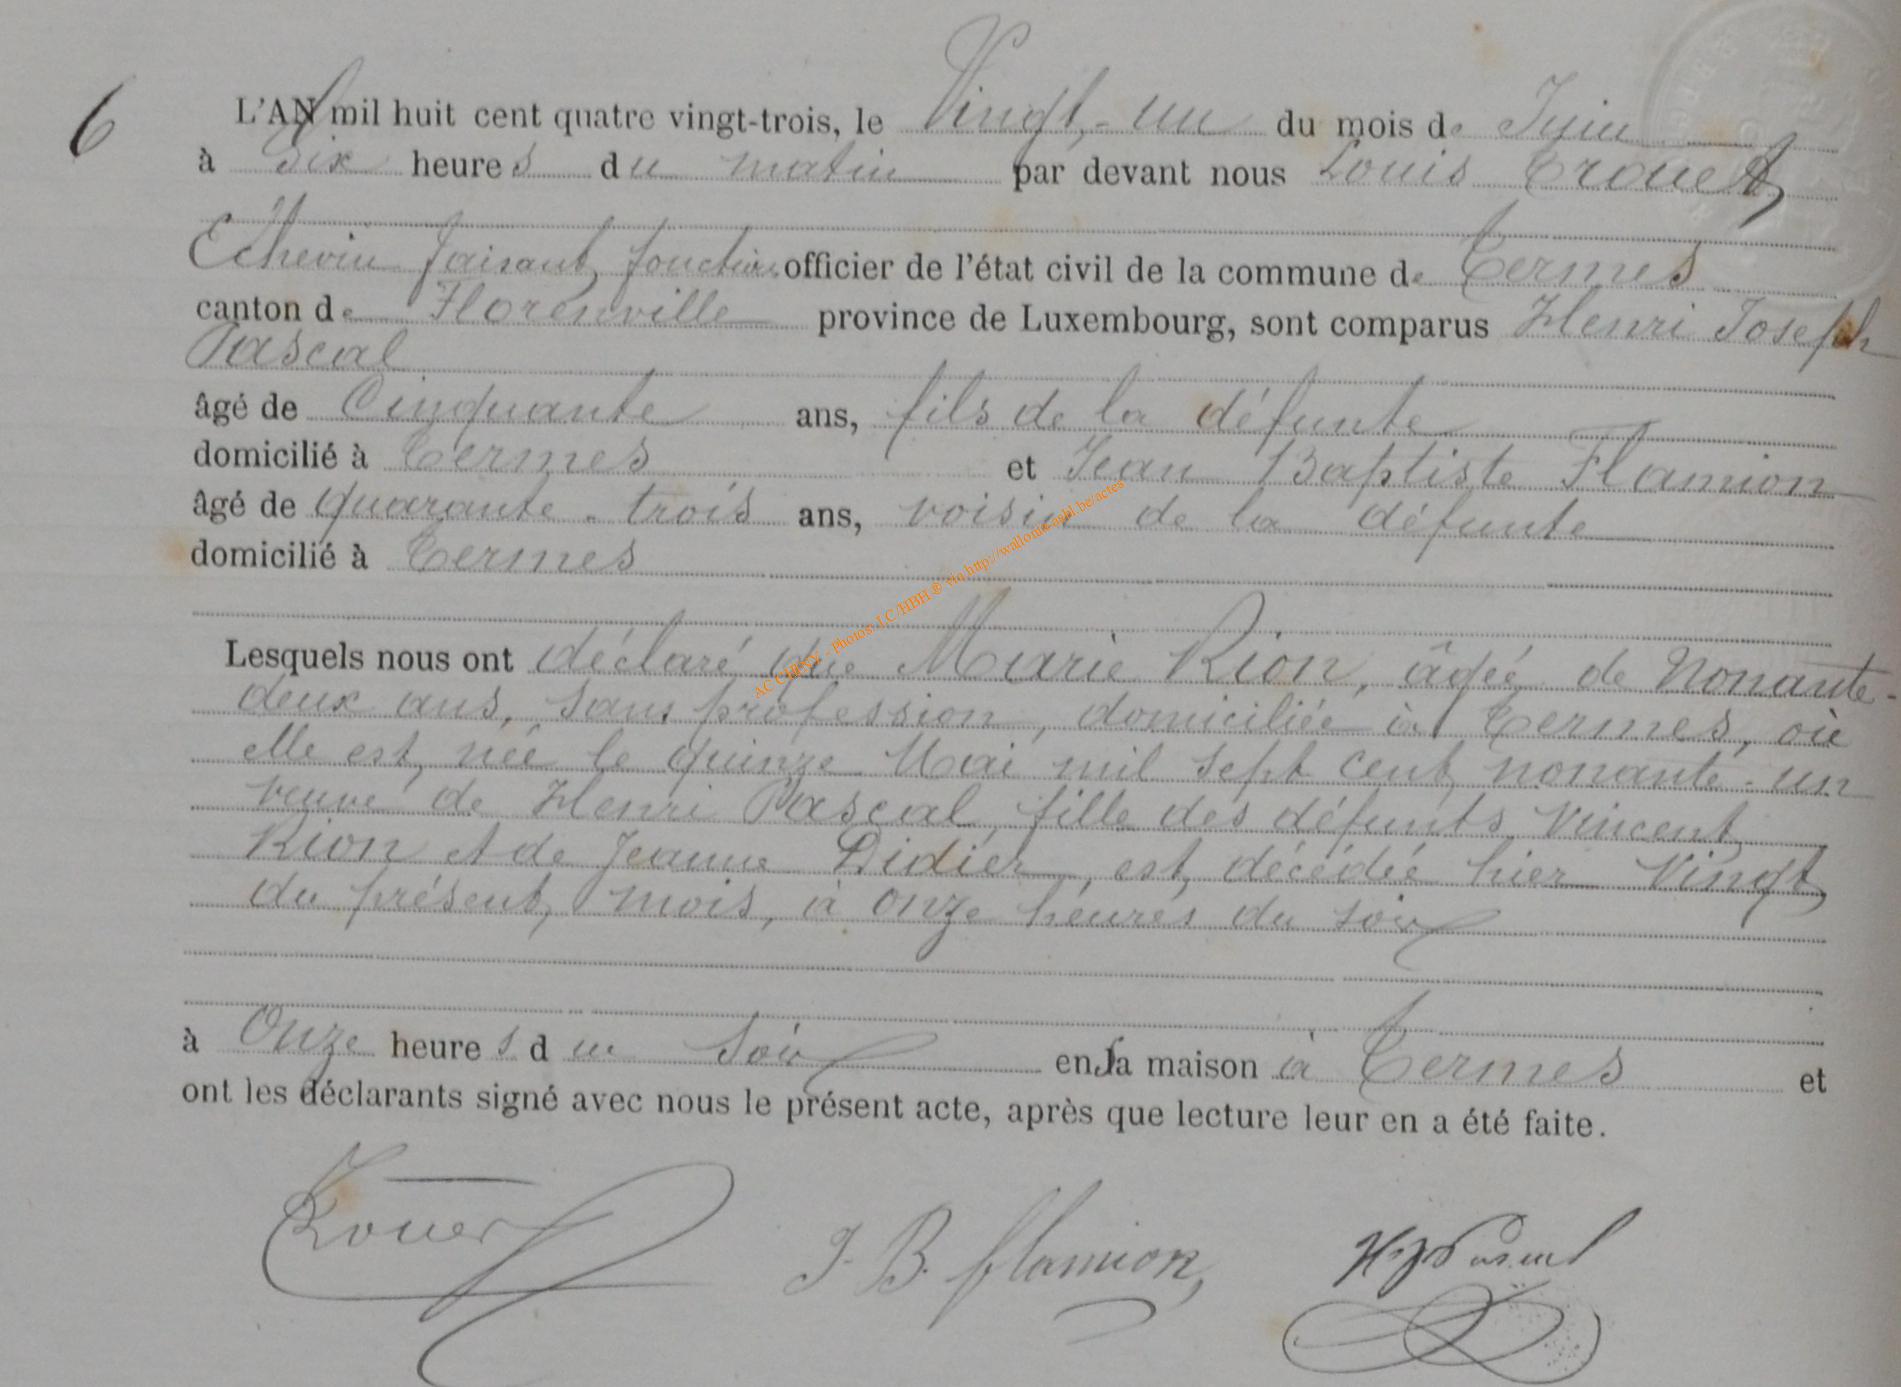 6
L'AN mil huit cent quatre vingt-trois, le Vingt-un du mois de Juin
à Six heures du matin par devant nous Louis Trouet
Echevin faisant fonctions officier de l'état civil de la commune de Termes
canton de Florenville province de Luxembourg, sont comparus Henri Joseph
Pascal
âgé de Cinquante ans, fils de la défunte
domicilié à Termes et Jean Baptiste Flamion
âgé de quarante-trois ans, voisin de la défunte
domicilié à Termes
Lesquels nous ont déclaré que Marie Rion, âgée de Nonante-
deux ans, sans profession, domiciliée à Termes, où
elle est née le quinze Mai mil sept cent nonante-un
veuve de Henri Pascal, fille des défunts Vincent
Rion et de Jeanne Didier, est décédée hier Vingt
du présent mois, à onze heures du soir
à Onze heures du soir en sa maison à Termes et
ont les déclarants signé avec nous le présent acte, après que lecture leur en a été faite.
Trouet J. B. flamion H J Pascal
AC CHINY - Photos: J.C/HBH ® via http://wallonia-asbl.be/actes